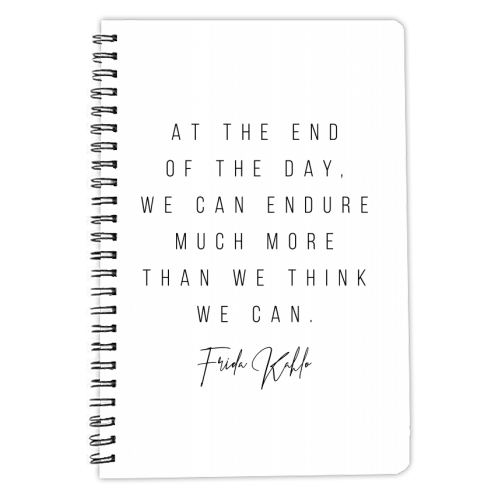 AT THE END
OF THE DAY,
WE CAN ENDURE
MUCH MORE
THAN WE THINK
WE CAN.
Frida Kahlo